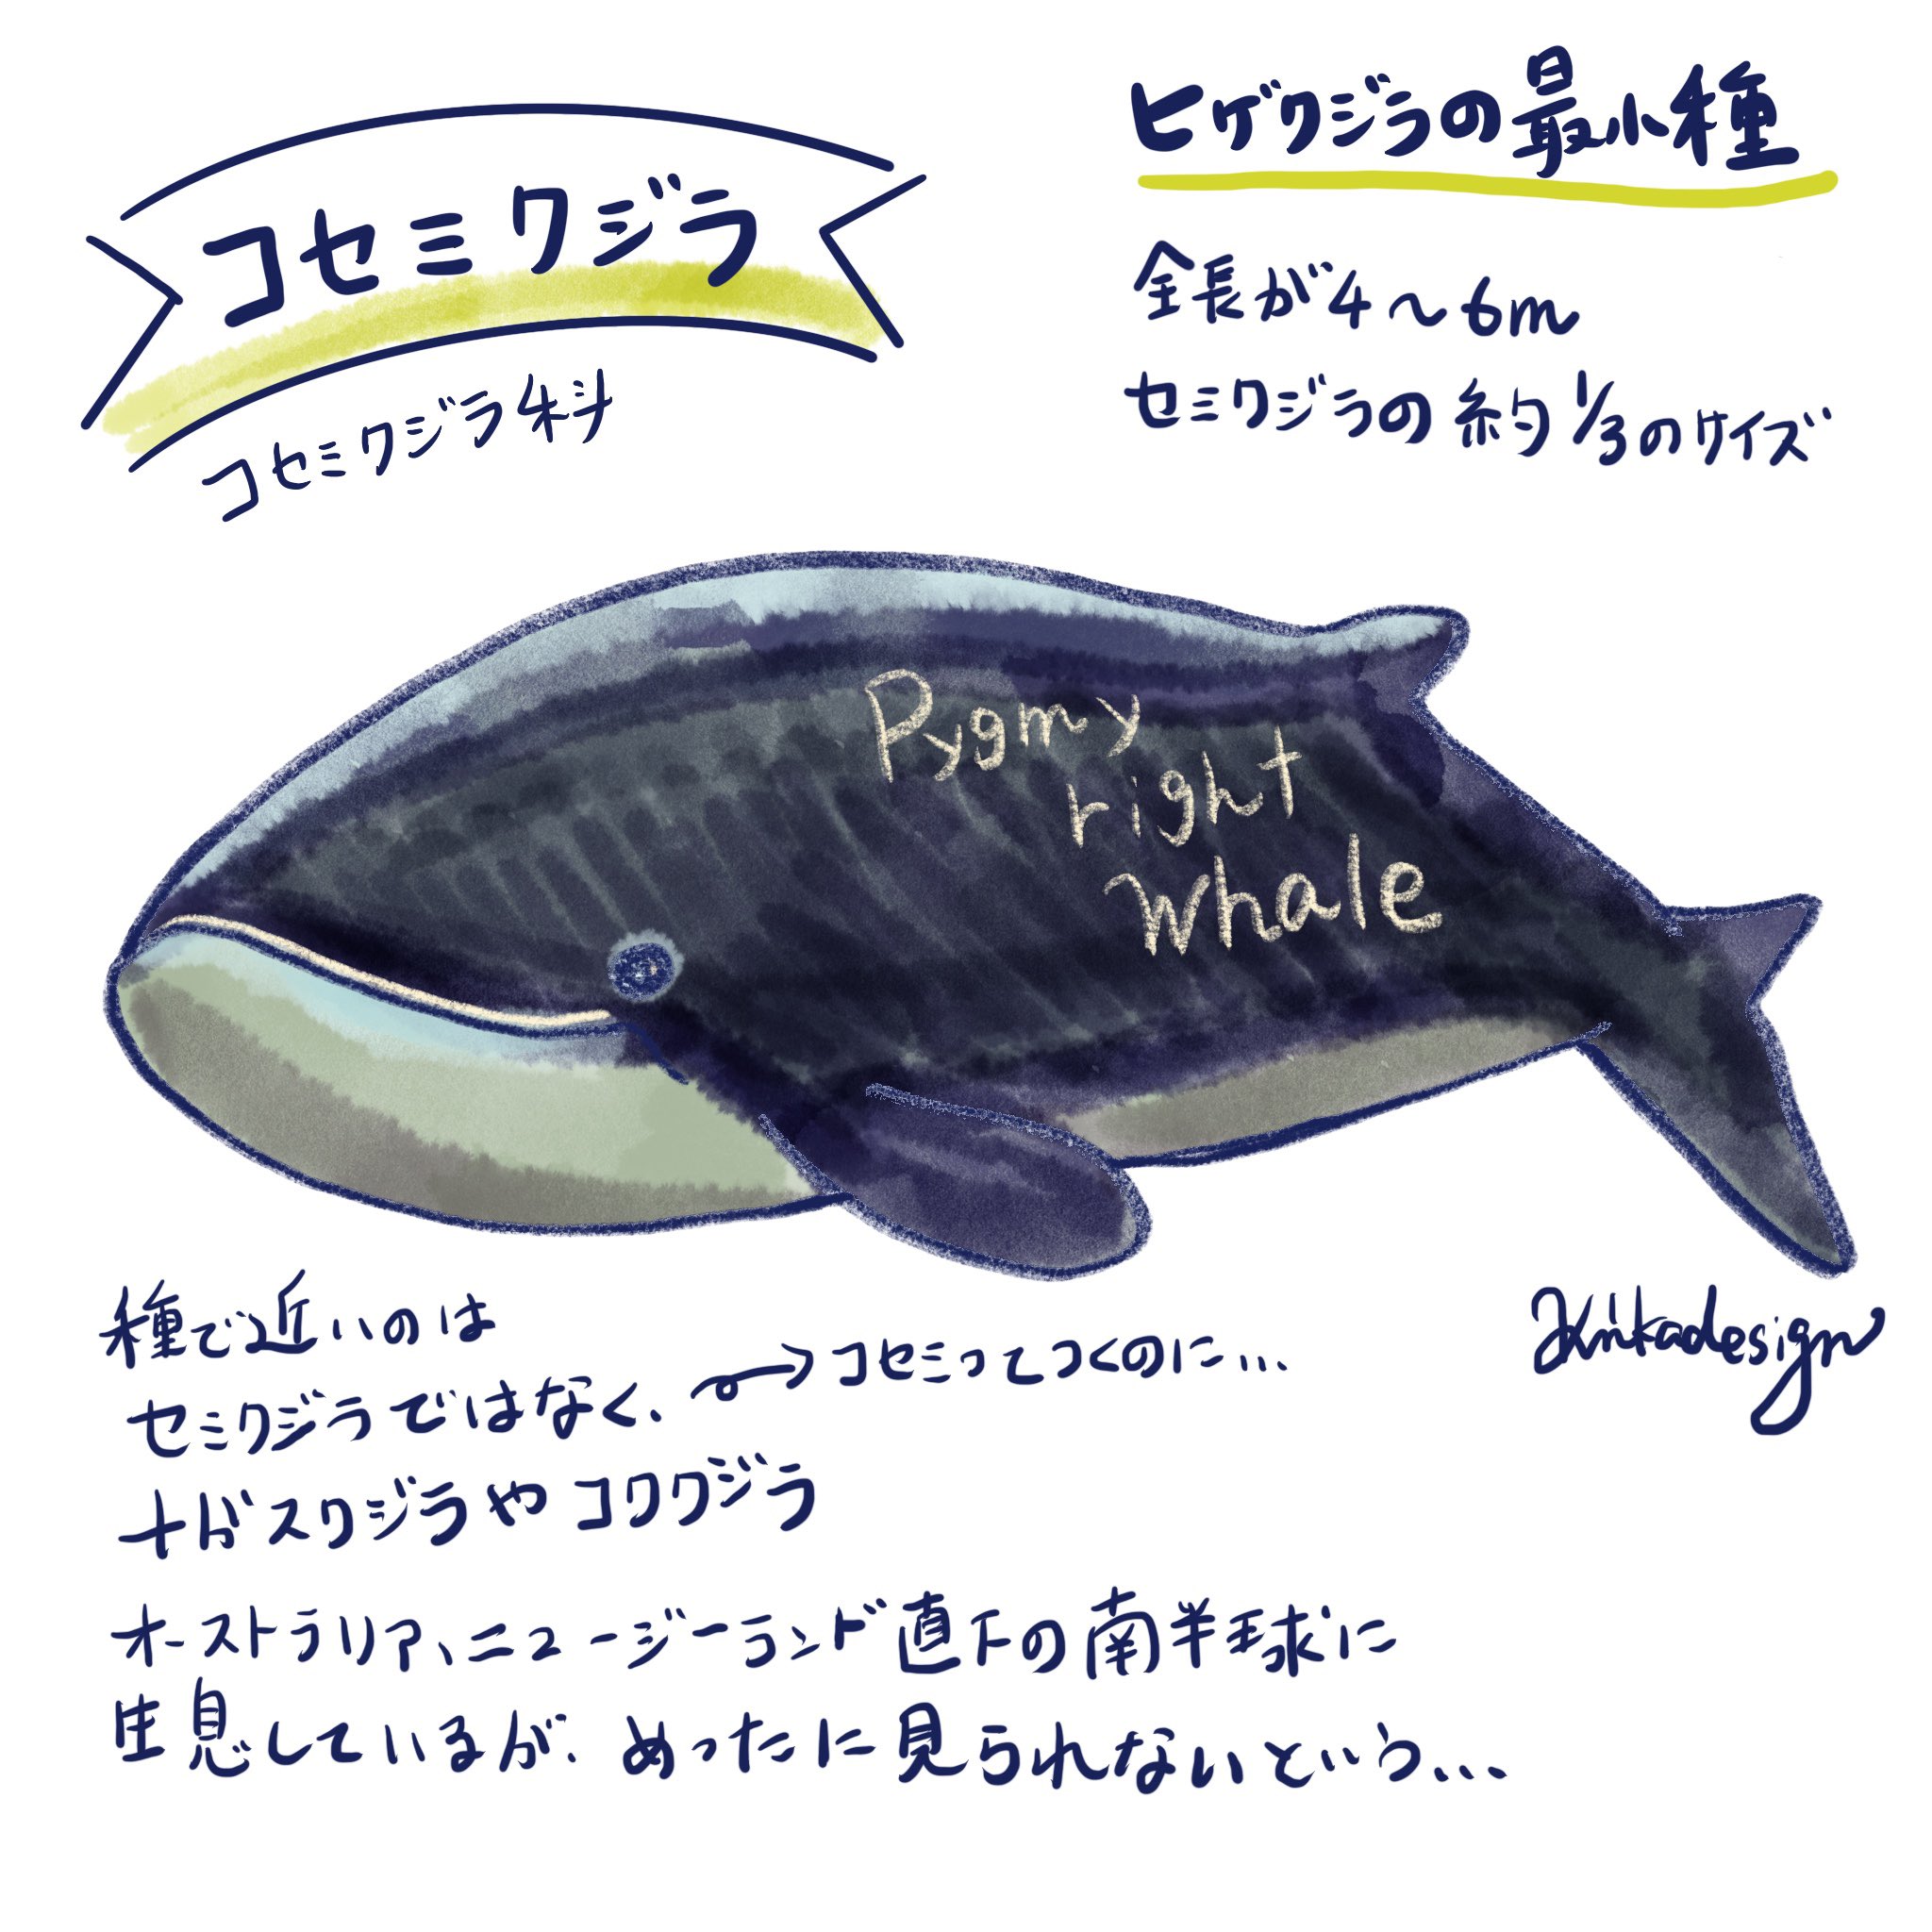 コセミクジラ
コセミクジラ科
ヒゲクジラの最小種
全長が4〜6m
セミクジラの約1/3のサイズ
Pygmy
right
whale
種で近いのは
セミクジラではなく、
→コセミってつくのに…
ナガスクジラやコククジラ
オーストラリア、ニュージーランド直下の南半球に
生息しているが、めったに見られないという…